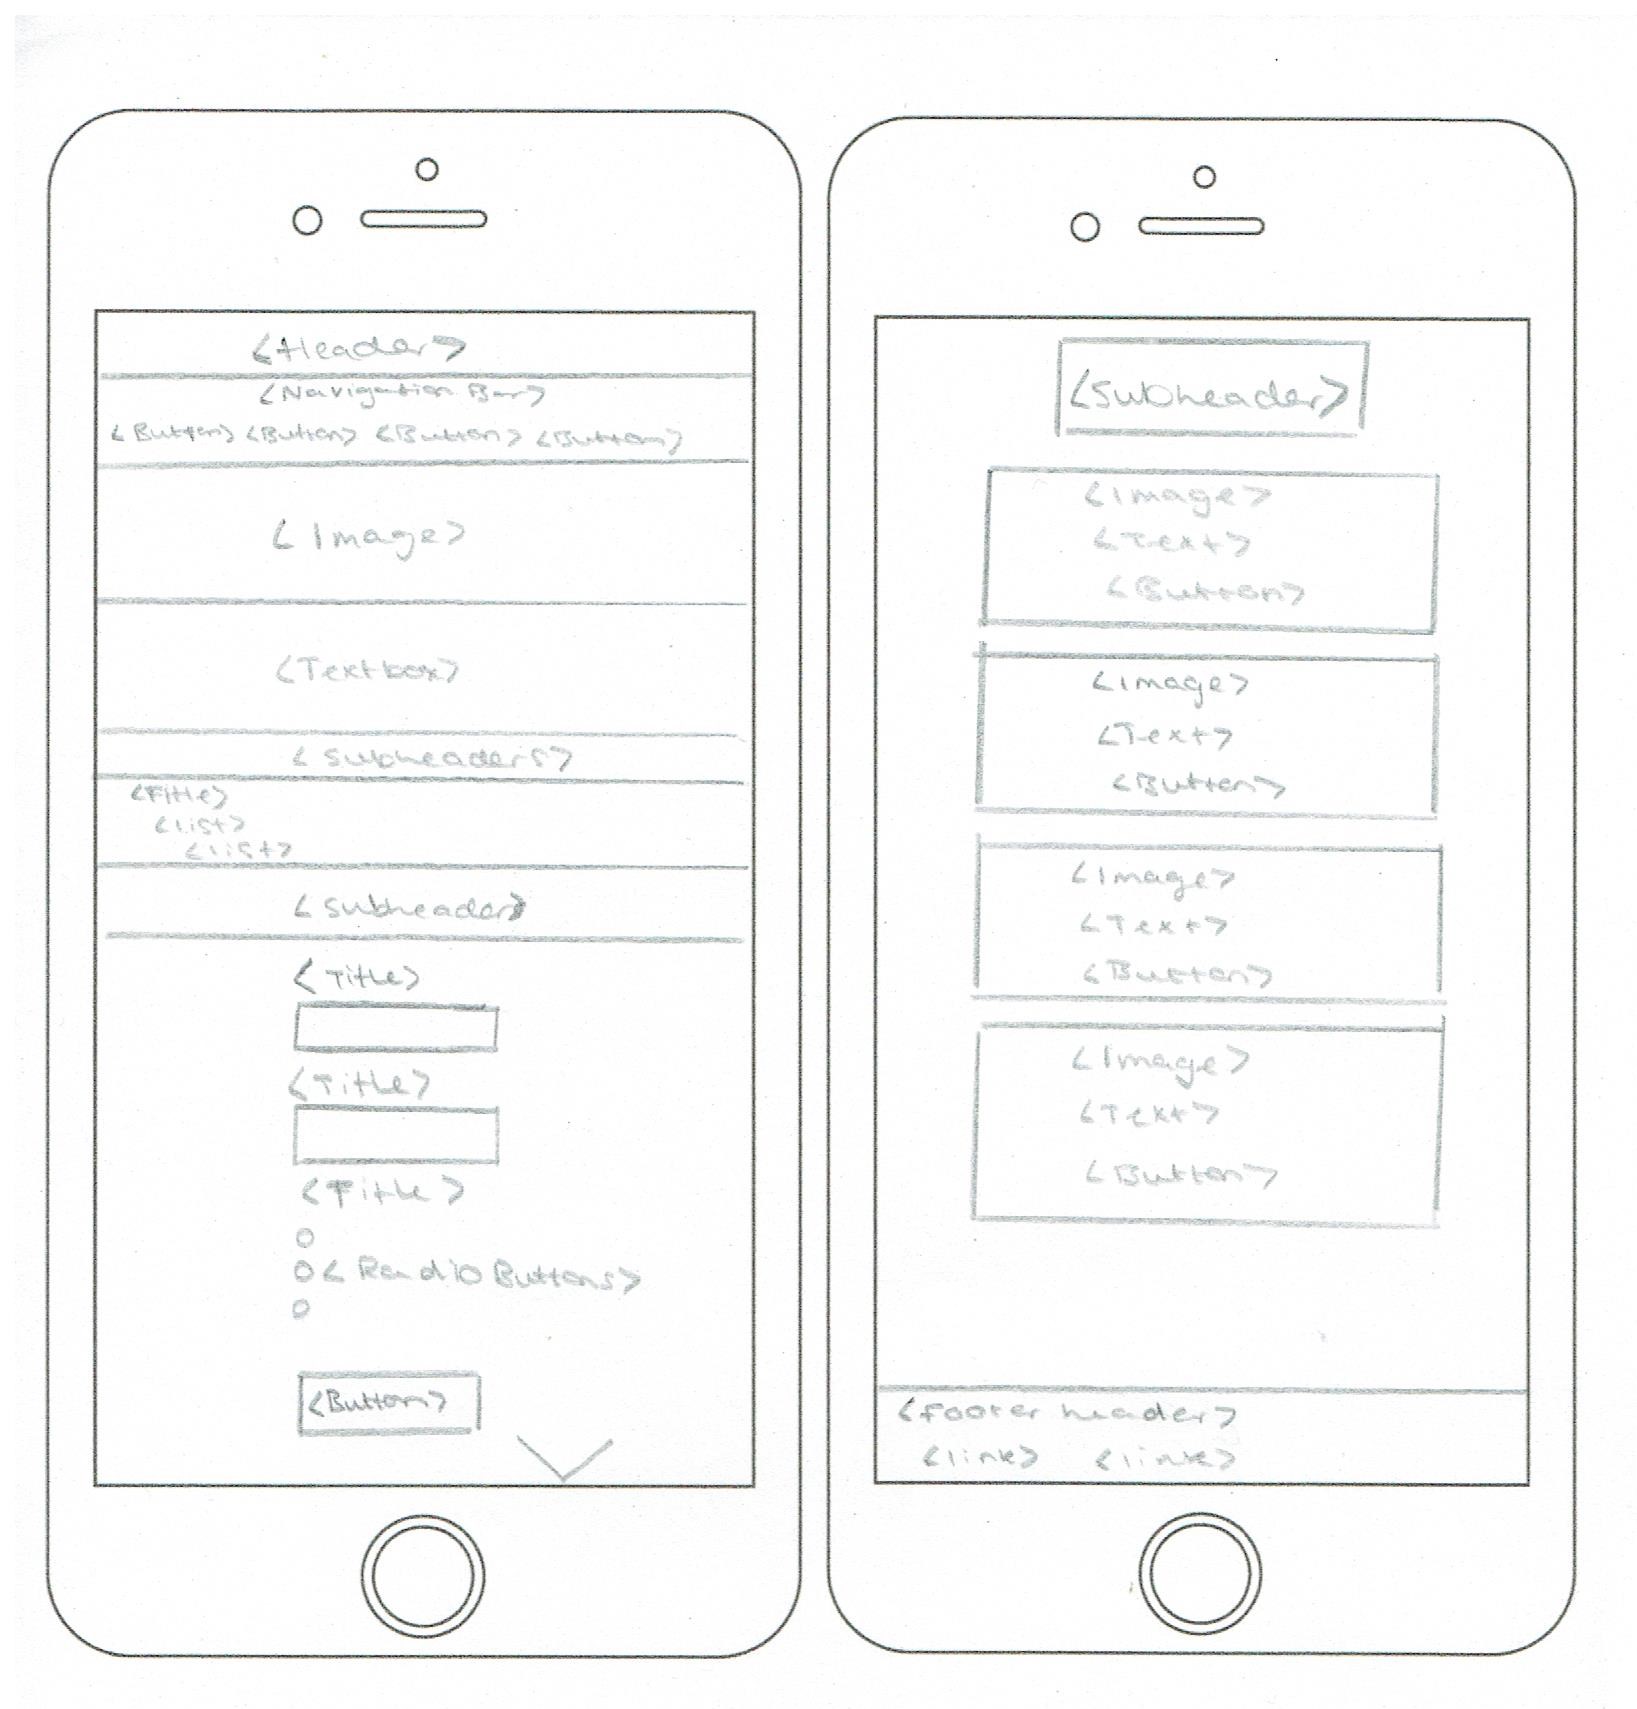 <Header>
<Navigation Bar>
<Button> <Button> <Button> <Button>
<Image>
<Textbox>
<Subheaders>
<Title>
<list>
<list>
<subheader>
<Title>
<Title>
<Title>
<Radio Buttons>
<Button>
<Subheader>
<Image>
<Text>
<Button>
<Image>
<Text>
<Button>
<Image>
<Text>
<Button>
<Image>
<Text>
<Button>
<footer header>
<link> <link>